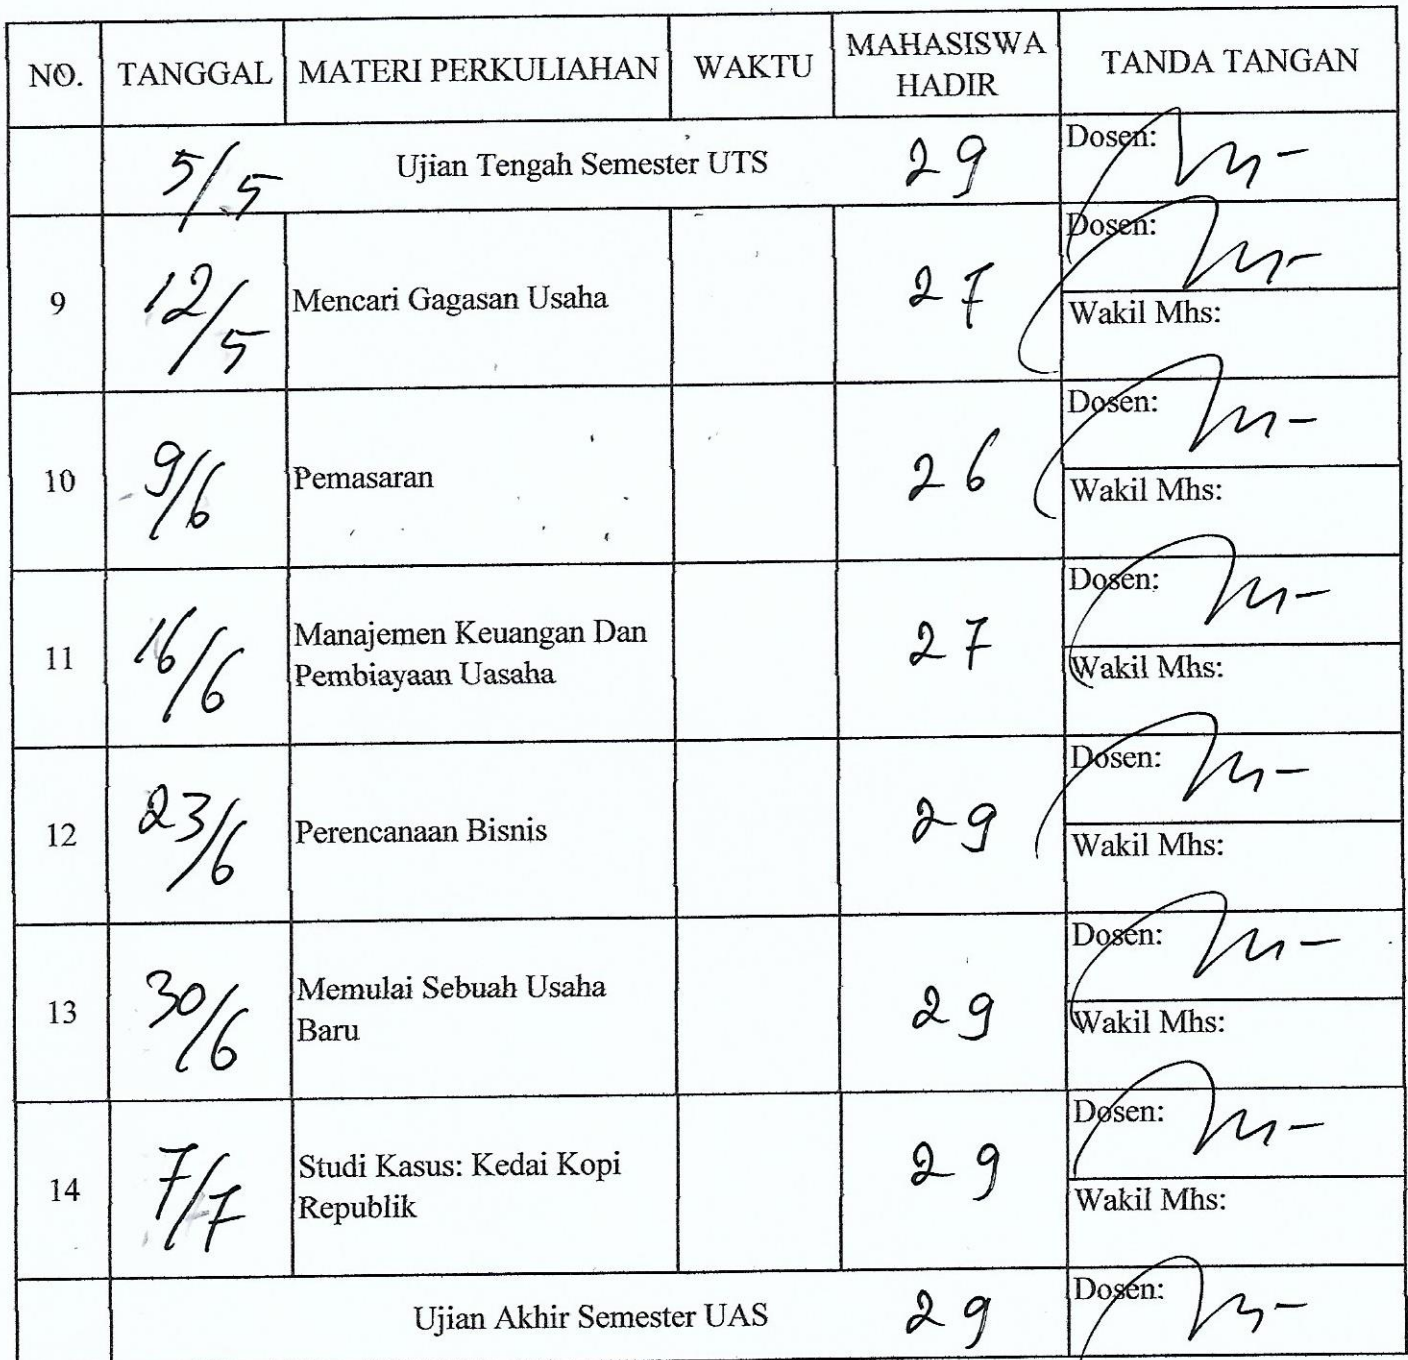 NO. TANGGAL MATERI PERKULIAHAN WAKTU MAHASISWA HADIR TANDA TANGAN
5/5 Ujian Tengah Semester UTS 29 Dosen:
9 12/5 Mencari Gagasan Usaha 27 Dosen:
Wakil Mhs:
10 9/6 Pemasaran 26 Dosen:
Wakil Mhs:
11 16/6 Manajemen Keuangan Dan 27 Dosen:
Pembiayaan Uasaha Wakil Mhs:
12 23/6 Perencanaan Bisnis 29 Dosen:
Wakil Mhs:
13 30/6 Memulai Sebuah Usaha 29 Dosen:
Baru Wakil Mhs:
14 7/7 Studi Kasus: Kedai Kopi 29 Dosen:
Republik Wakil Mhs:
Ujian Akhir Semester UAS 29 Dosen: